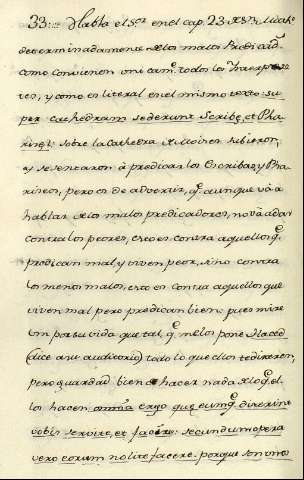 33:= Habla el S.or en el cap. 23 de S.n Math.o
determinadamente de los malos Predicad.s
como convienen en mi cam.o todos los Interpre-
tes, y como es literal en el mismo texto: su-
per cathedram sederunt Scribe, et Pha-
risei: sobre la Cathedra de Moises subieron,
y se sentaron à predicar los Escribas, y Pha-
riseos, pero es de advertir, q.e aunque và à
hablar de los malos predicadores, no và à dar
contra los peores, esto es contra aquellos q.e
predican mal, y viven peor, sino contra
los menos malos, esto es contra aquellos que
viven mal pero predican bien, pues mire
por su vida que tal, q.e me los pone Haced
(dice a su auditorio) todo lo que ellos te dixeren,
pero guardad bien de hacer nada de lo q.e el-
los hacen omnia ergo quecumq.e dixerint
vobis servate, et facite: secundum opera
vero eorum nolite facere. porque son unos